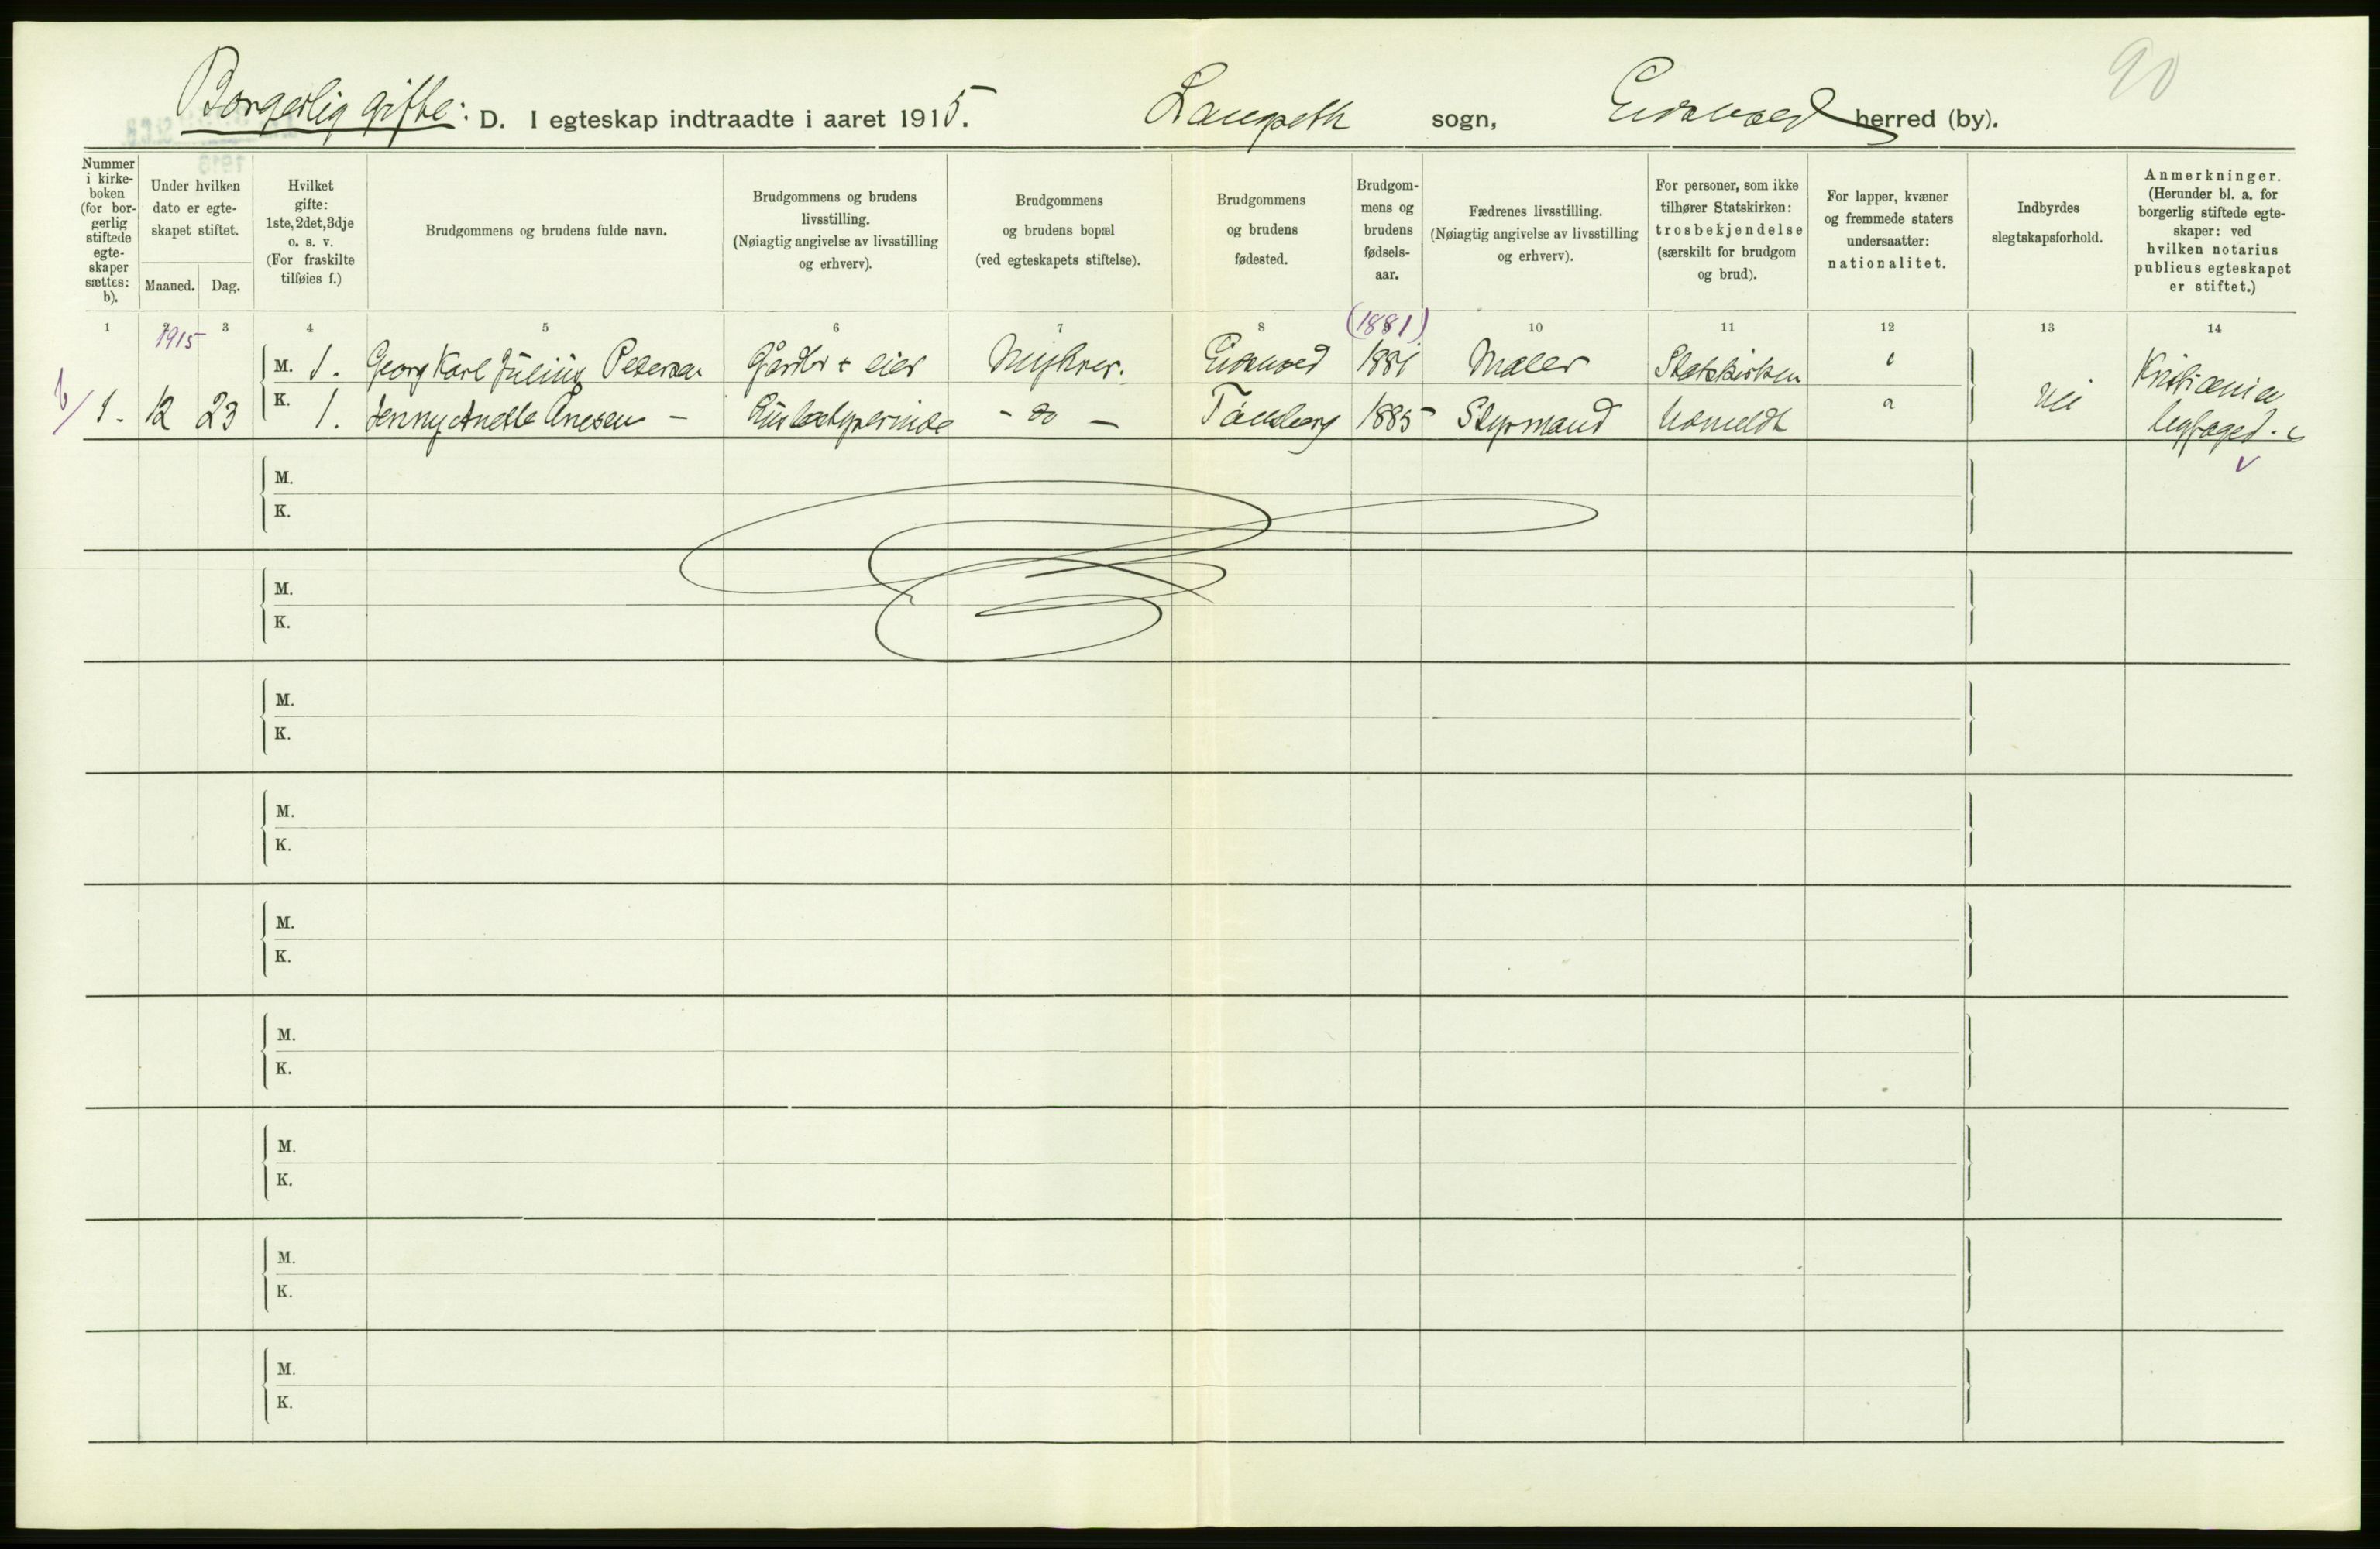 90
Borgerlig gifte: D. I egteskap indtraadte i aaret 1915. Langseth sogn, Eidsvold herred (by).
Nummer i kirke-boken (for bor-gerlig stiftede egte-skaper sættes: b).
Under hvilken dato er egte-skapet stiftet.
Maaned. Dag.
Hvilket gifte: 1ste, 2det, 3dje o. s. v. (For fraskilte tilføies f.)
Brudgommens og brudens fulde navn.
Brudgommens og brudens livsstilling. (Nøiagtig angivelse av livsstilling og erhverv).
Brudgommens og brudens bopæl (ved egteskapets stiftelse).
Brudgommens og brudens fødested.
Brudgom-mens og brudens fødsels-aar.
Fædrenes livsstilling. (Nøiagtig angivelse av livsstilling og erhverv).
For personer, som ikke tilhører Statskirken: trosbekjendelse (særskilt for brudgom og brud).
For lapper, kvæner og fremmede staters undersaatter: nationalitet.
Indbyrdes slegtskapsforhold.
Anmerkninger. (Herunder bl. a. for borgerlig stiftede egte-skaper: ved hvilken notarius publicus egteskapet er stiftet.)
1 2 3 4 5 6 7 8 9 10 11 12 13 14
1915 (1881)
M. 1. Georg Karl Julius Petersen Gårdbr + eier Eidsvold 1881 Maler Statskirken Kristiania
b/ 1. 12 23 K. 1. Jenny Anette - Husbestyrerinde - do - Tønsberg 1885 Styrmand Udmeldt Nei byfoged.
M.
K.
M.
K.
M.
K.
M.
K.
M.
K.
M.
K.
M.
K.
M.
K.
M.
K.